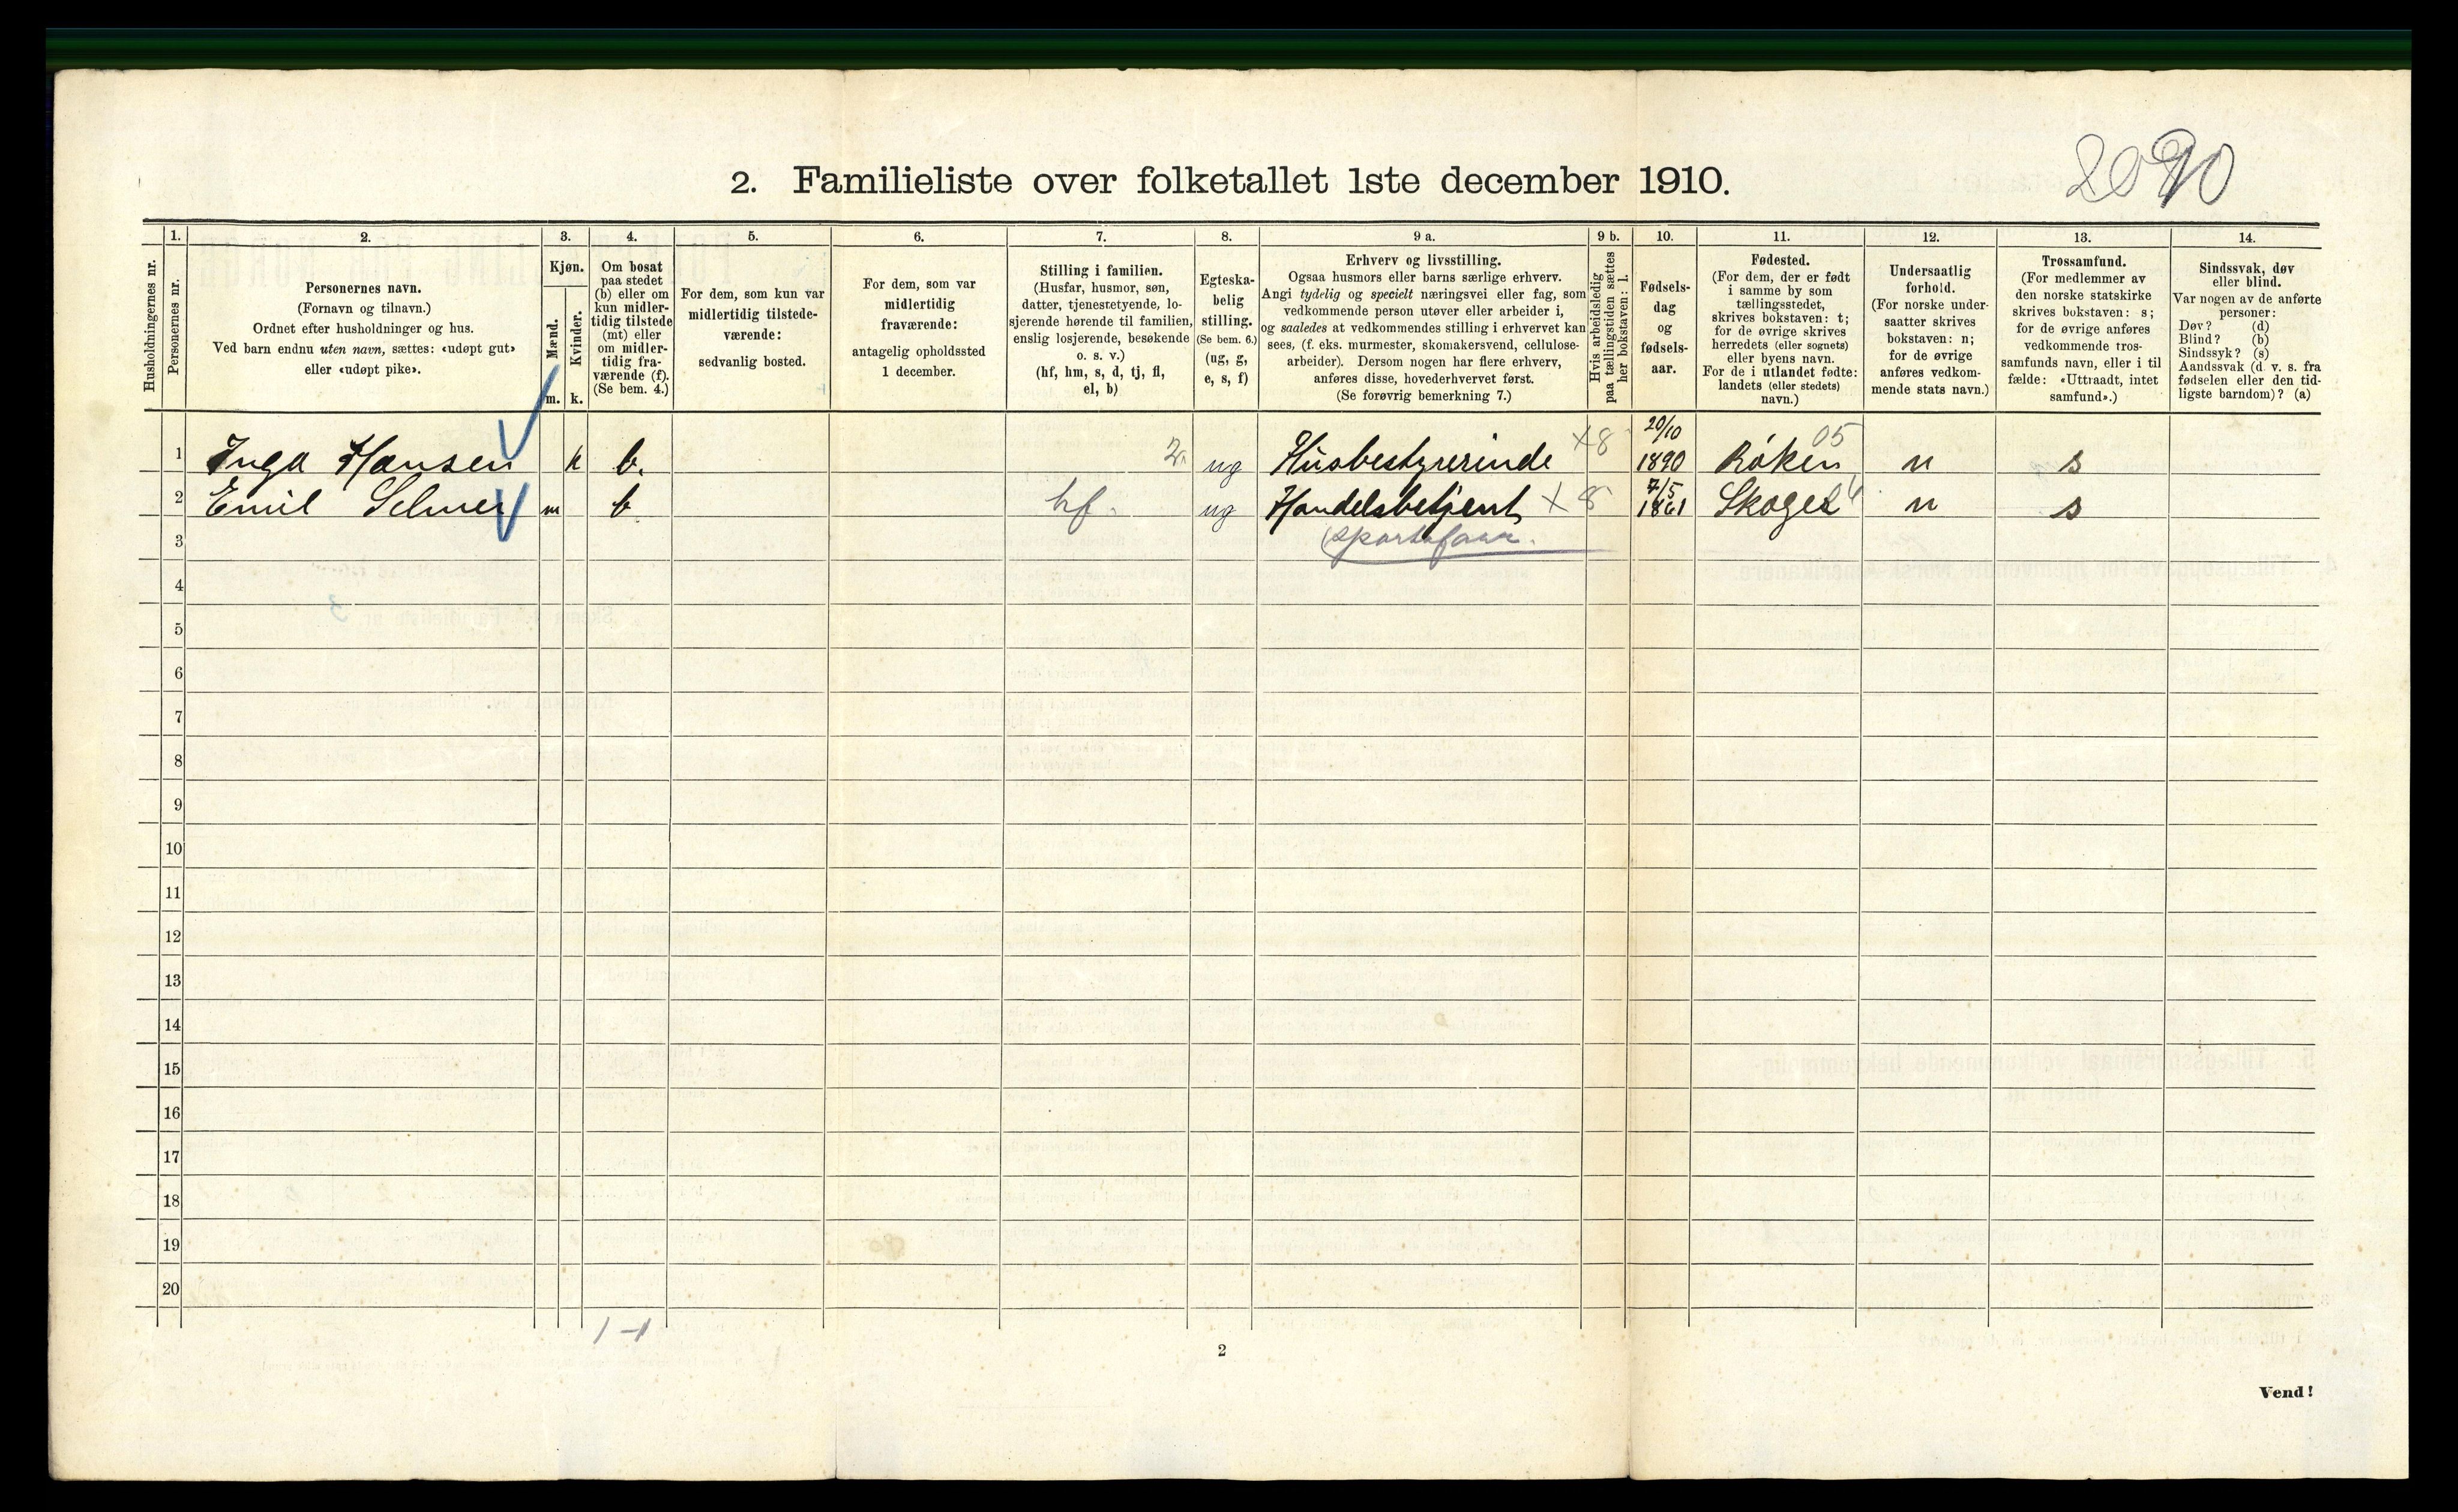 2090
2. Familieliste over folketallet 1ste december 1910.
Husholdningernes nr.
1.
Personernes nr.
2.
Personernes navn.
(Fornavn og tilnavn.)
Ordnet efter husholdninger og hus.
Ved barn endnu uten navn, sættes: «udøpt gut»
eller «udøpt pike».
3.
Kjøn.
Mænd.
m.
Kvinder.
k.
4.
Om bosat
paa stedet
(b) eller om
kun midler-
tidig tilstede
(mt) eller
om midler-
tidig fra-
værende (f).
(Se bem. 4.)
5.
For dem, som kun var
midlertidig tilstede-
værende:
sedvanlig bosted.
6.
For dem, som var
midlertidig
fraværende:
antagelig opholdssted
1 december.
7.
Stilling i familien.
(Husfar, husmor, søn,
datter, tjenestetyende, lo-
sjerende hørende til familien,
enslig losjerende, besøkende
o. s. v.)
(hf, hm, s, d, tj, fl,
el, b)
8.
Egteska-
belig
stilling.
(Se bem. 6.)
(ug, g,
e, s, f)
9 a.
Erhverv og livsstilling.
Ogsaa husmors eller barns særlige erhverv.
Angi tydelig og specielt næringsvei eller fag, som
vedkommende person utøver eller arbeider i,
og saaledes at vedkommendes stilling i erhvervet kan
sees, (f. eks. murmester, skomakersvend, cellulose-
arbeider). Dersom nogen har flere erhverv,
anføres disse, hovederhvervet først.
(Se forøvrig bemerkning 7.)
9 b.
Hvis arbeidsledig
paa tællingstiden sættes
her bokstaven: l.
10.
Fødsels-
dag
og
fødsels-
aar.
11.
Fødested.
(For dem, der er født
i samme by som
tællingsstedet,
skrives bokstaven: t;
for de øvrige skrives
herredets (eller sognets)
eller byens navn.
For de i utlandet fødte:
landets (eller stedets)
navn.)
12.
Undersaatlig
forhold.
(For norske under-
saatter skrives
bokstaven: n;
for de øvrige
anføres vedkom-
mende stats navn.)
13.
Trossamfund.
(For medlemmer av
den norske statskirke
skrives bokstaven: s;
for de øvrige anføres
vedkommende tros-
samfunds navn, eller i til
fælde: «Uttraadt, intet
samfund».)
14.
Sindssvak, døv
eller blind.
Var nogen av de anførte
personer:
Døv? (d)
Blind? (b)
Sindssyk? (s)
Aandssvak (d. v. s. fra
fødselen eller den tid-
ligste barndom)? (a)
1 Inga Hansen k b. 2. ug Husbestyrerinde x8 20/10 1890 Røken 05 n s
2 Emil Selmer m b hf. ug Handelsbetjent x 8 7/5 1861 Skoger n s
3
4
5
6
7
8
9
10
11
12
13
14
15
16
17
18
19
20
1-1
2
Vend!